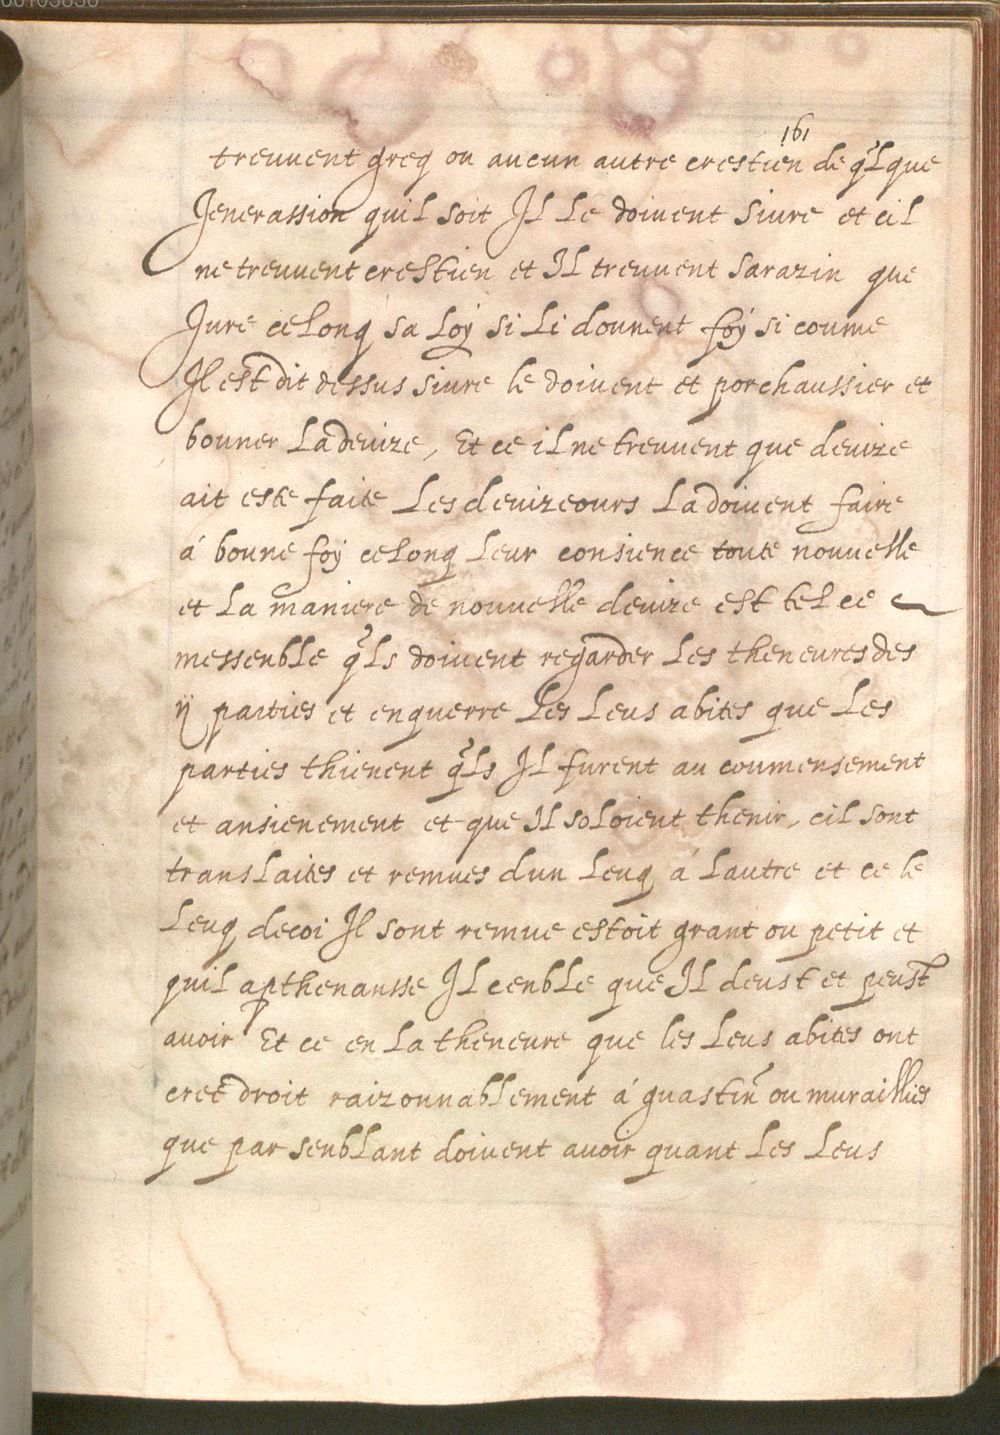 161
treuuent greq ou aucun autre crestien de qlque
Jenerassion quil soit Il Le doiuent siure et cil
ne treuuent crestien et Il treuuent sarazin que
Jure celonq sa Loÿ si Li dounent foÿ si coume
Il est dit dessus siure le doiuent et porchaussier et
bouner La deuize, Et ce il ne treuuent que deuize
ait este faite Les deuizeours La doiuent faire
á boune foÿ celonq Leur consience toute nouuelle
et La maniere de nouuelle deuize est tel ce
messenble qls doiuent regarder Les theneures des
ij parties et enquerre Les Leus abites que Les
parties thienent qls Il furent au coumensement
et ansienement et que Il soloient thenir, cil sont
translaites et remues dun Leuq á Lautre et ce le
Leuq decoi Il sont remue estoit grant ou petit et
quil apthenausse Il cenble que Il deust et peust
auoir Et ce en La theneure que les Leus abites ont
cret droit raizonnablement á guastin ou muraillies
que par senblant doiuent auoir quant Les Leus